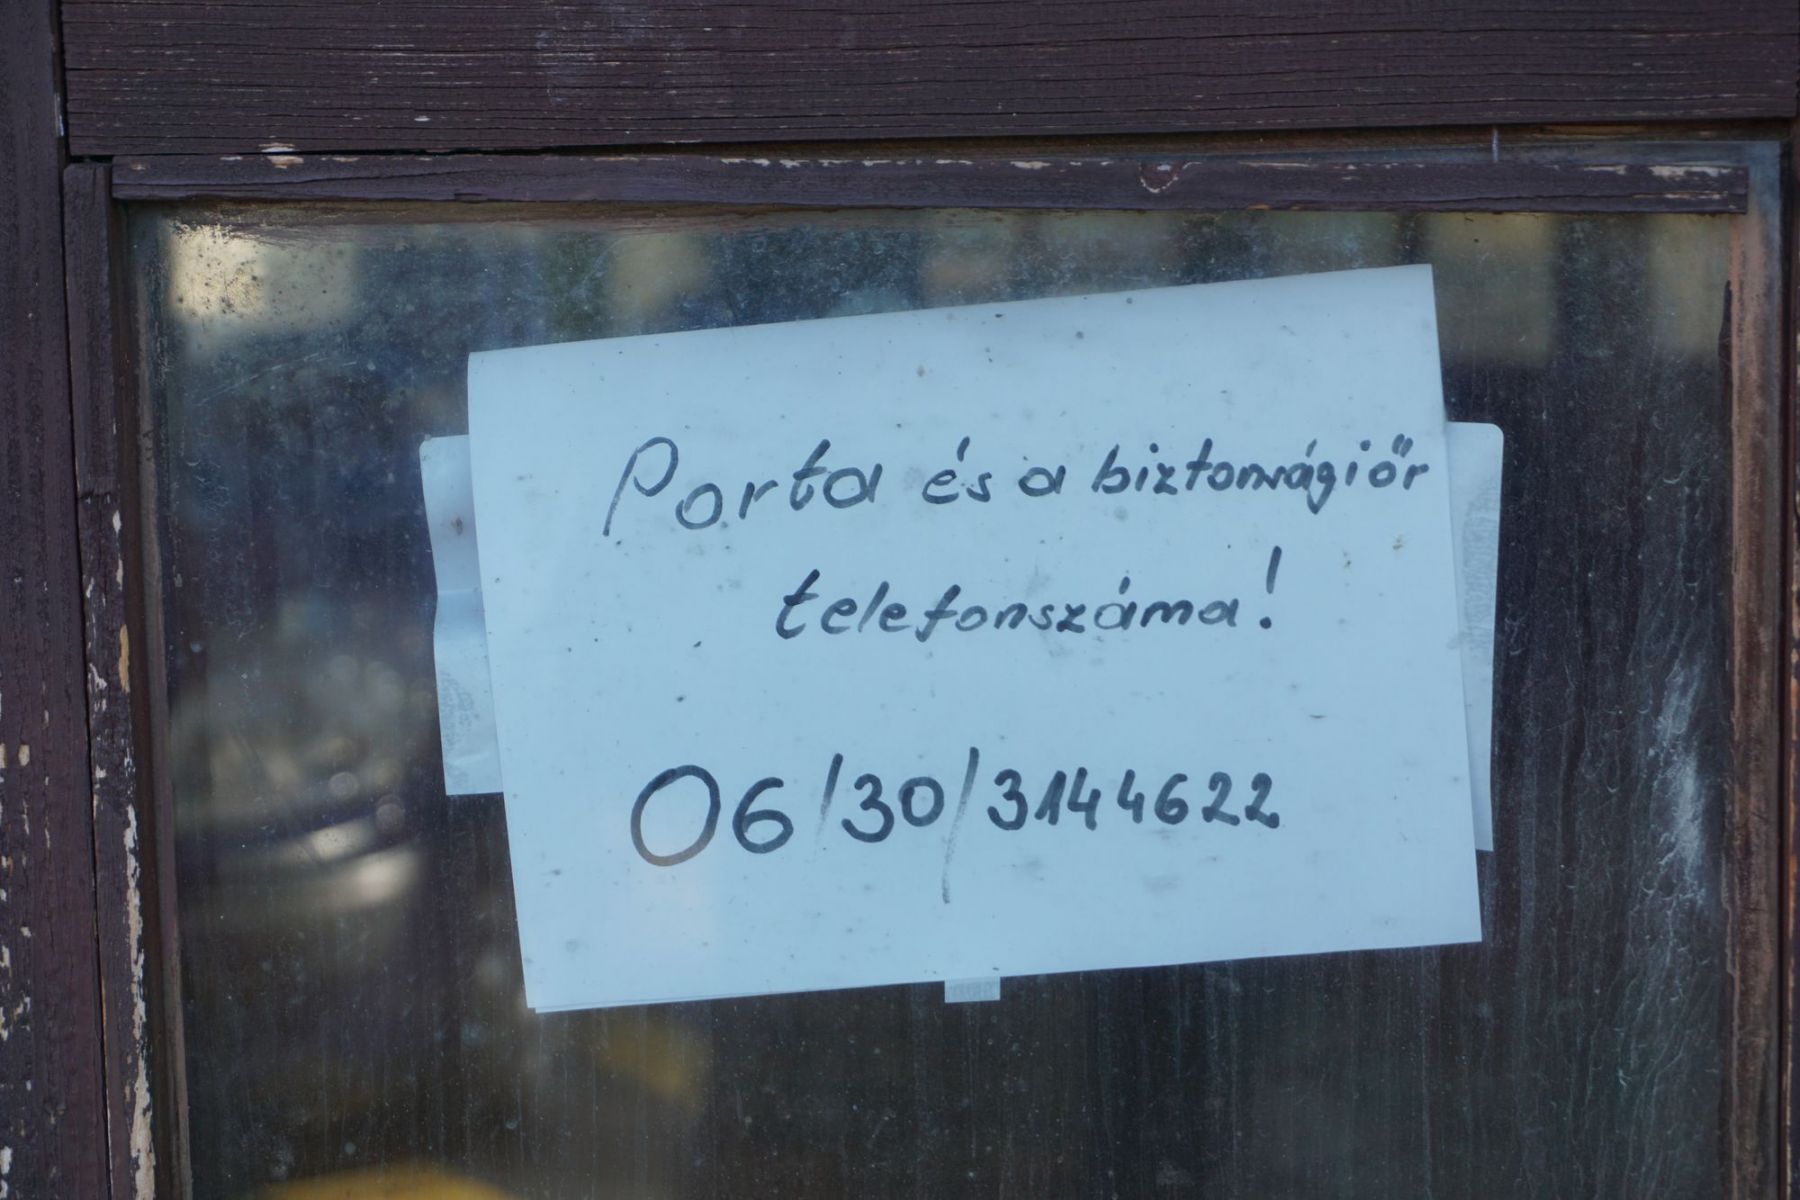 Porta és a biztonsági őr
telefonszáma!
06/30/3144622